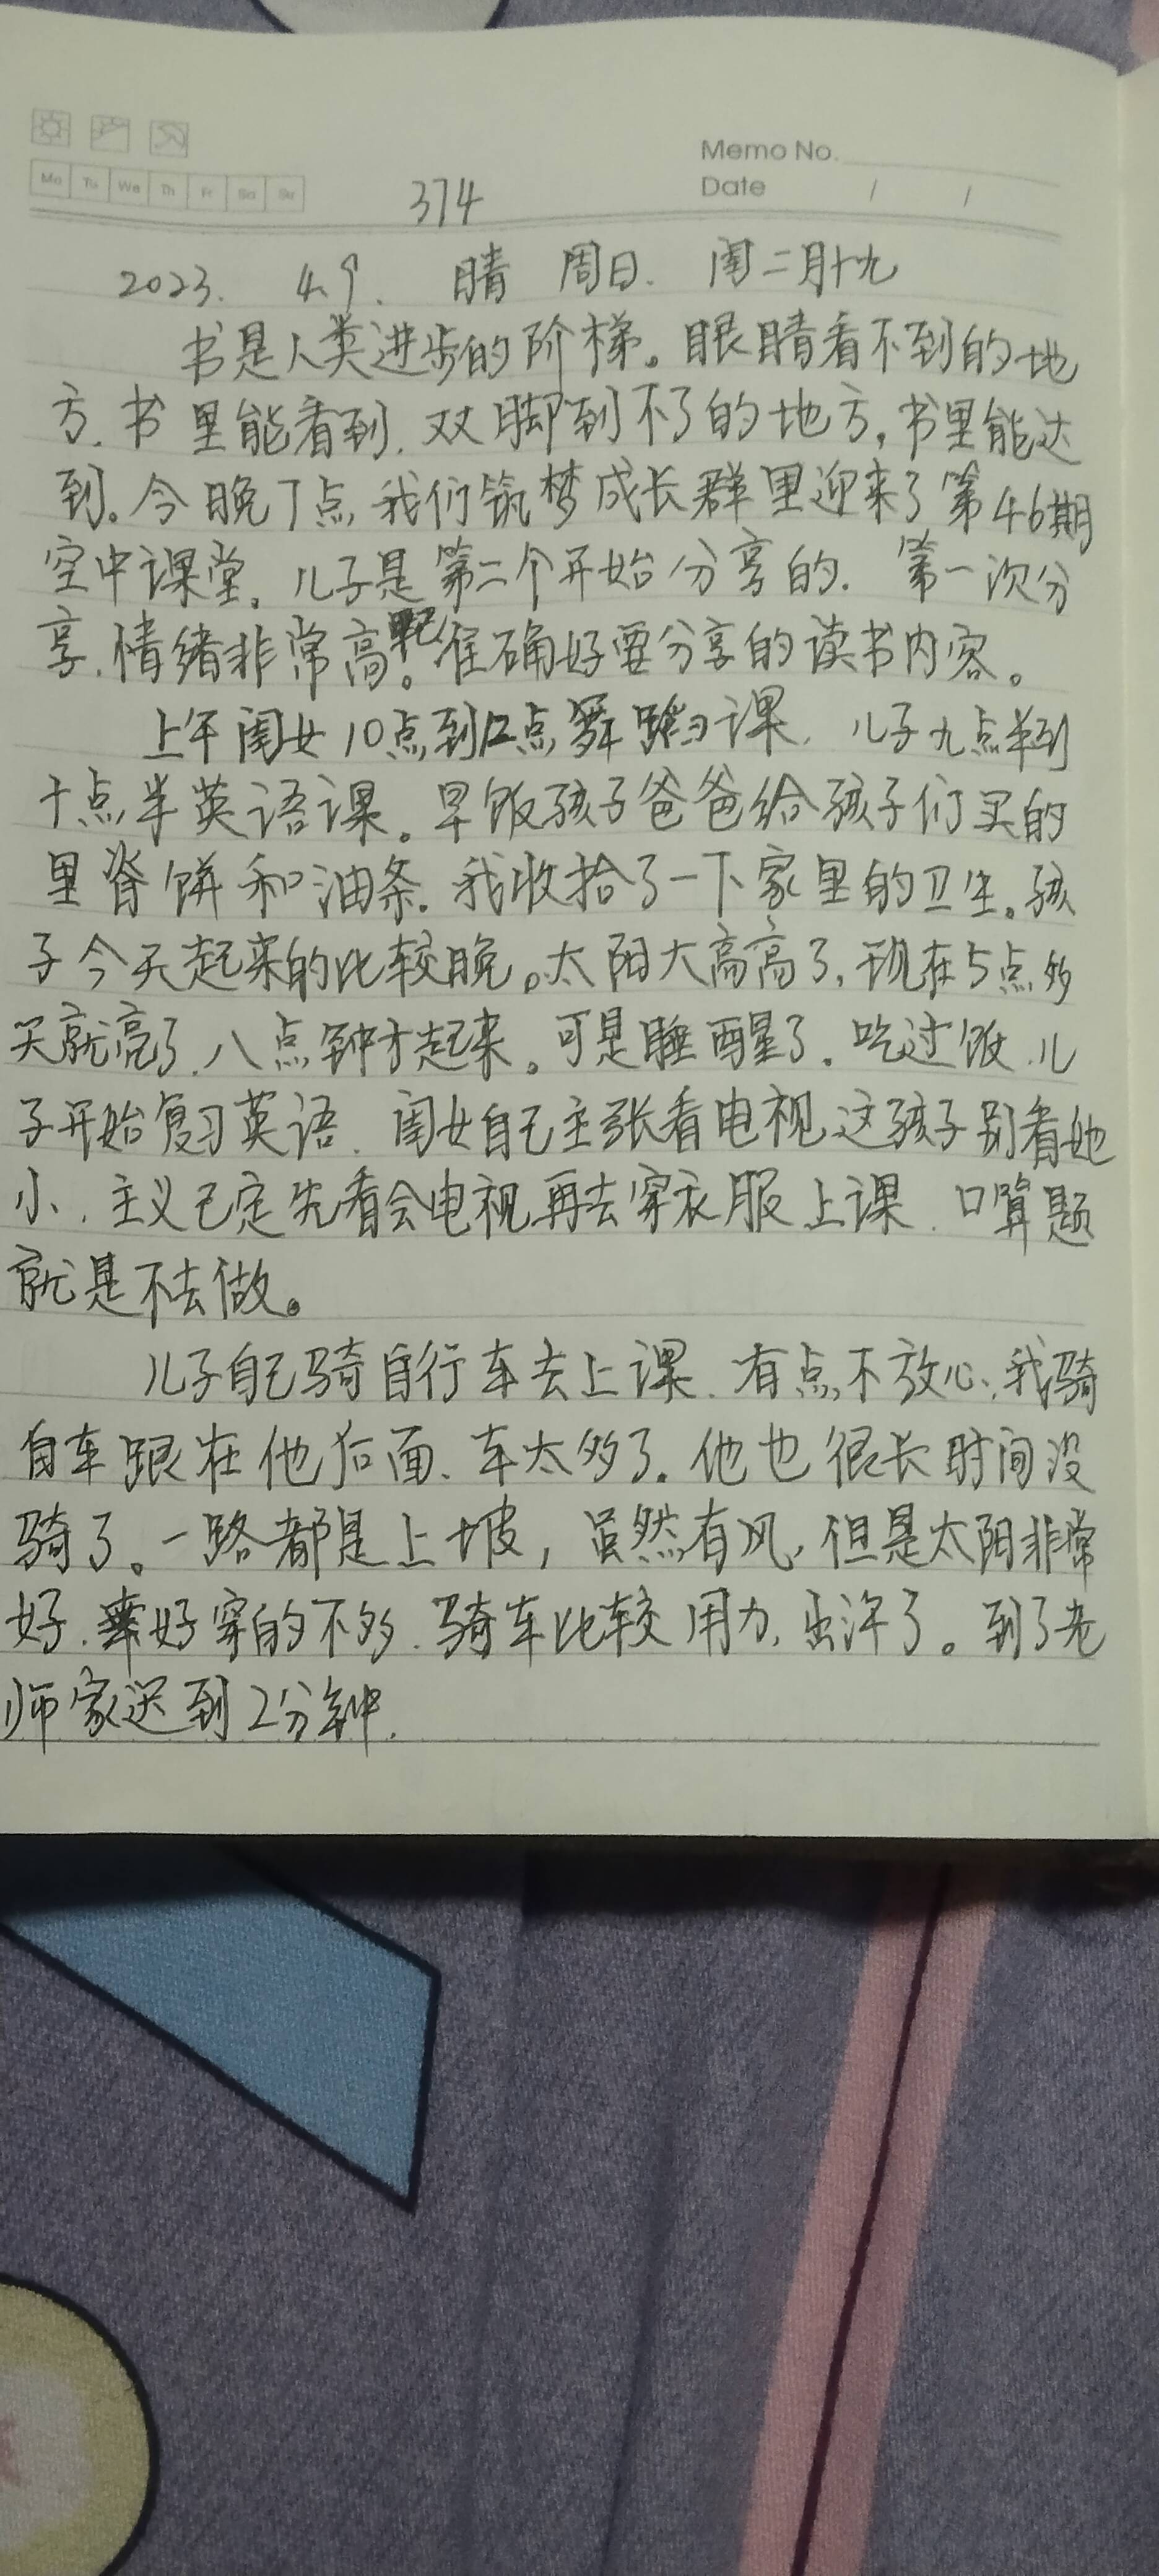 Memo No.
Mo Tu We Th Fr Sa Su
Date / /
374
2023. 4.9. 晴 周日. 闰二月十九
书是人类进步的阶梯。眼睛看不到的地
方.书里能看到.双脚到不了的地方,书里能达
到。今晚7点,我们筑梦成长群里迎来了第46期
空中课堂。儿子是第二个开始分享的. 第一次分
享.情绪非常高。准确好要分享的读书内容。
上午闺女10点到12点舞蹈课. 儿子九点半到
十点半英语课。早饭孩子爸爸给孩子们买的
里脊饼和油条.我收拾了一下家里的卫生。孩
子今天起来的比较晚。太阳大高高了,现在5点多
天就亮了.八点钟才起来。可是睡醒了.吃过饭.儿
子开始复习英语.闺女自己主张看电视,这孩子别看她
小.主义已定先看会电视再去穿衣服上课.口算题
就是不去做。
儿子自己骑自行车去上课.有点不放心,我骑
自车跟在他后面、车太多了.他也很长时间没
骑了。一路都是上坡,虽然有风,但是太阳非常
好.幸好穿的不多.骑车比较用力,出汗了。到了老
师家迟到2分钟.